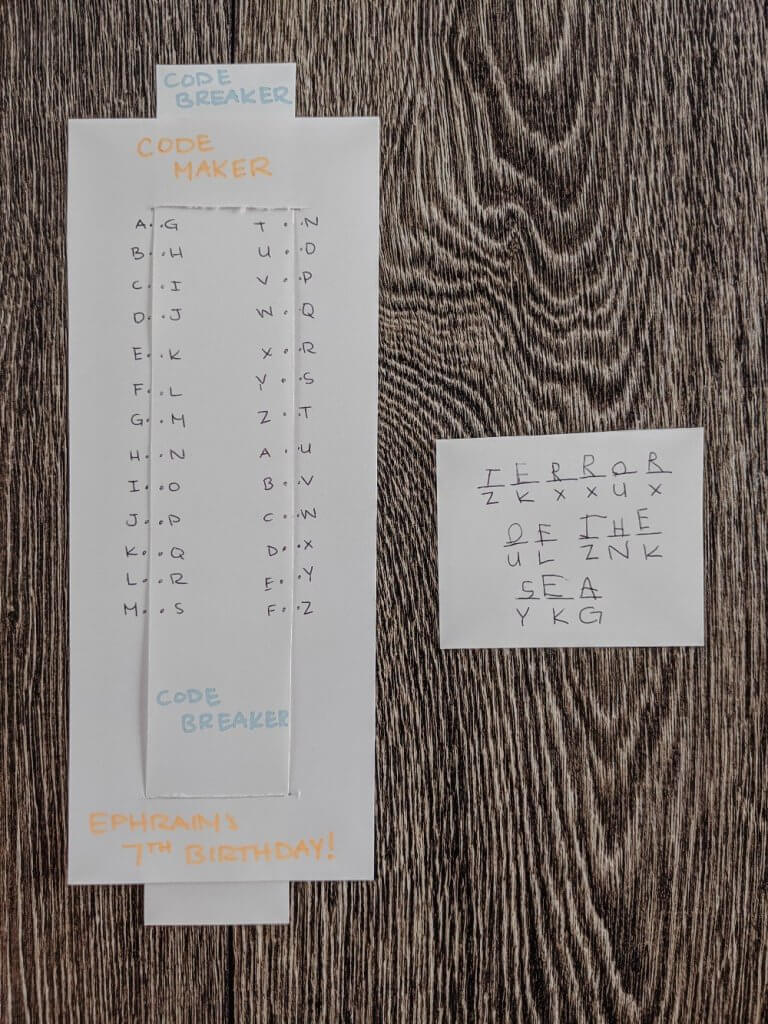 CODE
BREAKER
CODE
MAKER
A. .G T . .N
B. .H U . .O
C. .I V . .P
D. .J W . .Q
E. .K X . .R
F. .L Y . .S
G. .M Z . .T
H. .N A . .U
I. .O B . .V
J. .P C . .W
K. .Q D. .X
L. .R E. .Y
M. .S F. .Z
CODE
BREAKER
EPHRAIM'S
7TH BIRTHDAY!
TERROR
ZKXXUX
OF THE
UL ZNK
SEA
YKG